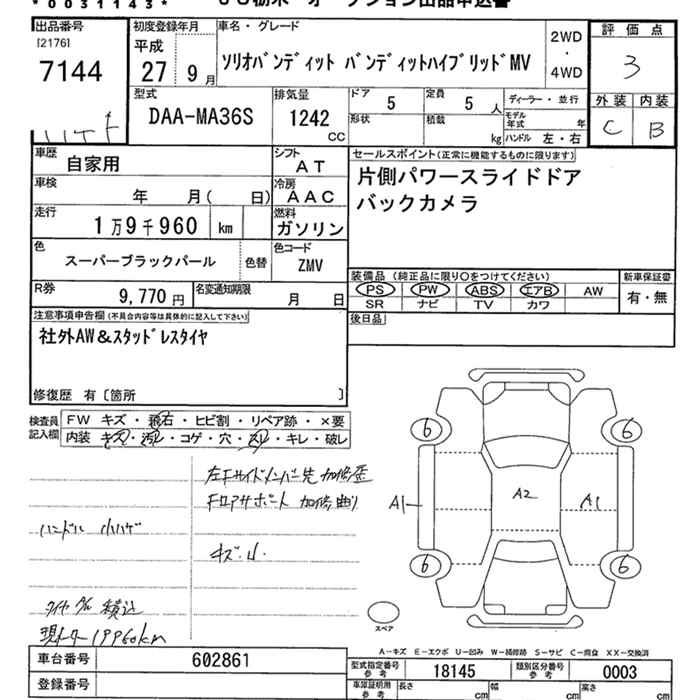 *0031143*
出品番号
[2176]
7144
初度登録年月
平成
27 9月
車名・グレード
ソリオバンディット バンディットハイブリッドMV
2WD
・
4WD
評価点
3
外装 内装
C B
型式
DAA-MA36S
排気量
1242
CC
ドア 5
定員 5人
形状
積載 kg
ディーラー・並行
モデル年式 年
ハンドル 左・右
車歴
自家用
シフト
AT
車検
年 月( 日)
冷房
AAC
走行
1万9千960 km
燃料
ガソリン
色
スーパーブラックパール
色替
色コード
ZMV
R券
9,770円
名変通知期限
月 日
セールスポイント(正常に機能するものに限ります)
片側パワースライドドア
バックカメラ
装備品(純正品に限り○をつけてください)
PS PW ABS エアB AW
SR ナビ TV カワ
新車保証書
有・無
後日品
注意事項申告欄(不具合内容等は具体的に記入して下さい)
社外AW&スタッドレスタイヤ
修復歴 有〔箇所 〕
検査員
記入欄
FW キズ・飛石・ヒビ割・リペア跡・×要
内装 キズ・汚レ・コゲ・穴・スレ・キレ・破レ
左Fサイドメンバー先 加修歪
Fロアサポート 加修曲り
ハンドル 小ハゲ
キズ小
タイヤ 積込
現メーター19960km
6 6
A1 A2 A1
6 6
スペア
A-キズ E-エクボ U-凹み W-補修跡 S-サビ C-腐食 XX-交換済
車台番号
602861
登録番号
型式指定番号
参考
18145
類別区分番号
参考
0003
車庫証明用
参考
長さ cm
幅 cm
高さ cm